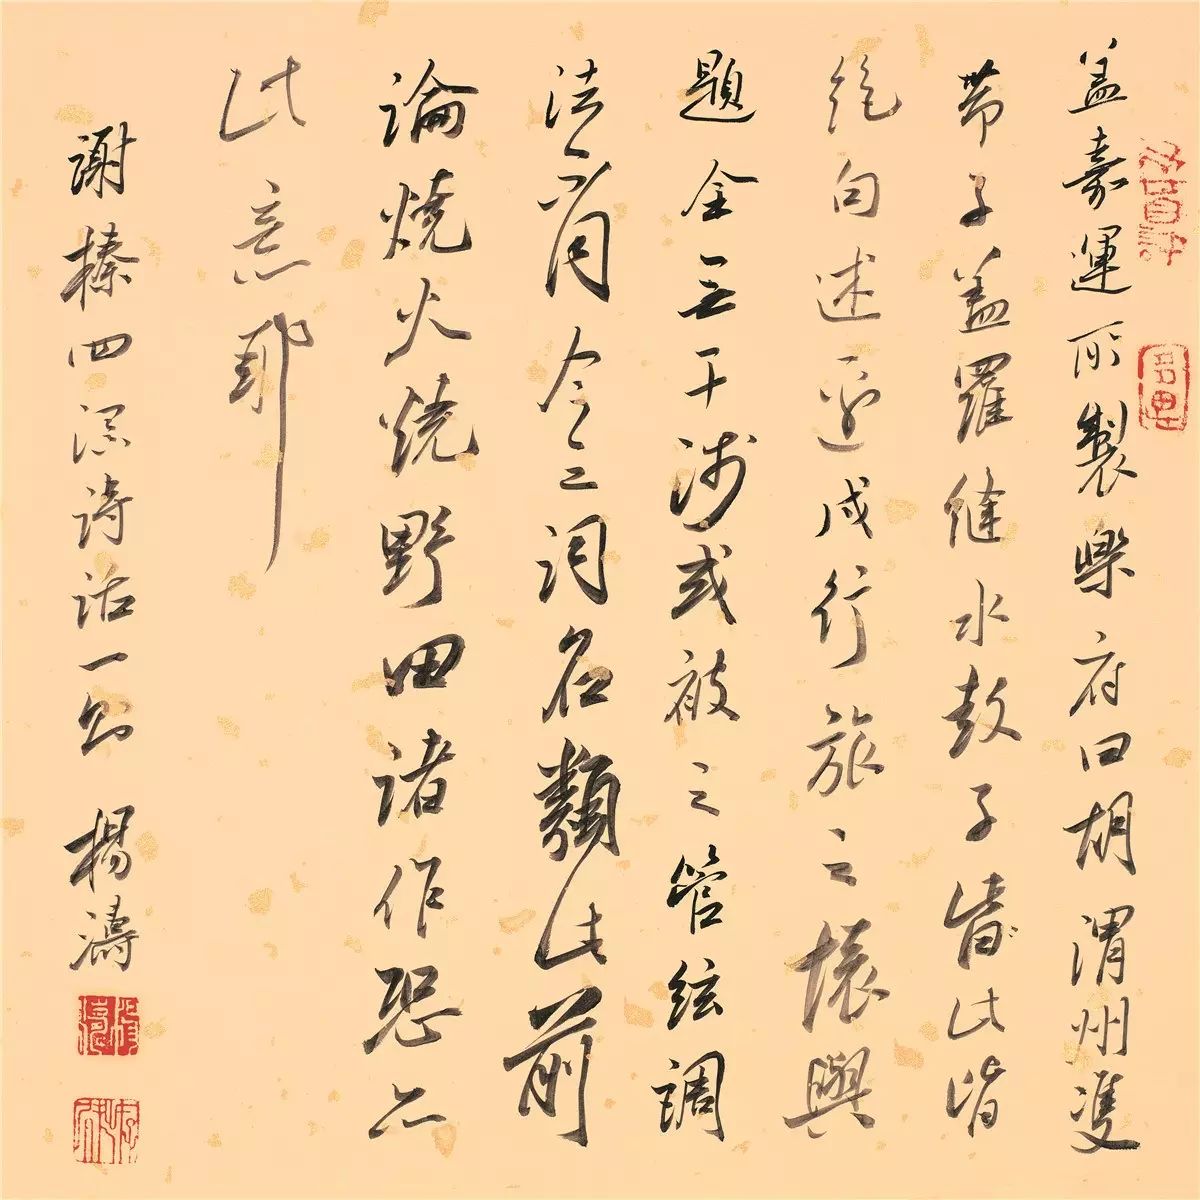 盖嘉運所製樂府曰胡渭州雙
帶子盖羅縫水鼓子皆此皆
絶句述邊戍行旅之懷與
題全無干涉或被之管絃調
法不同今之词名類此前
論燒火燒野田諸作恐亦
此意耶
謝榛四溟詩话一則 楊濤